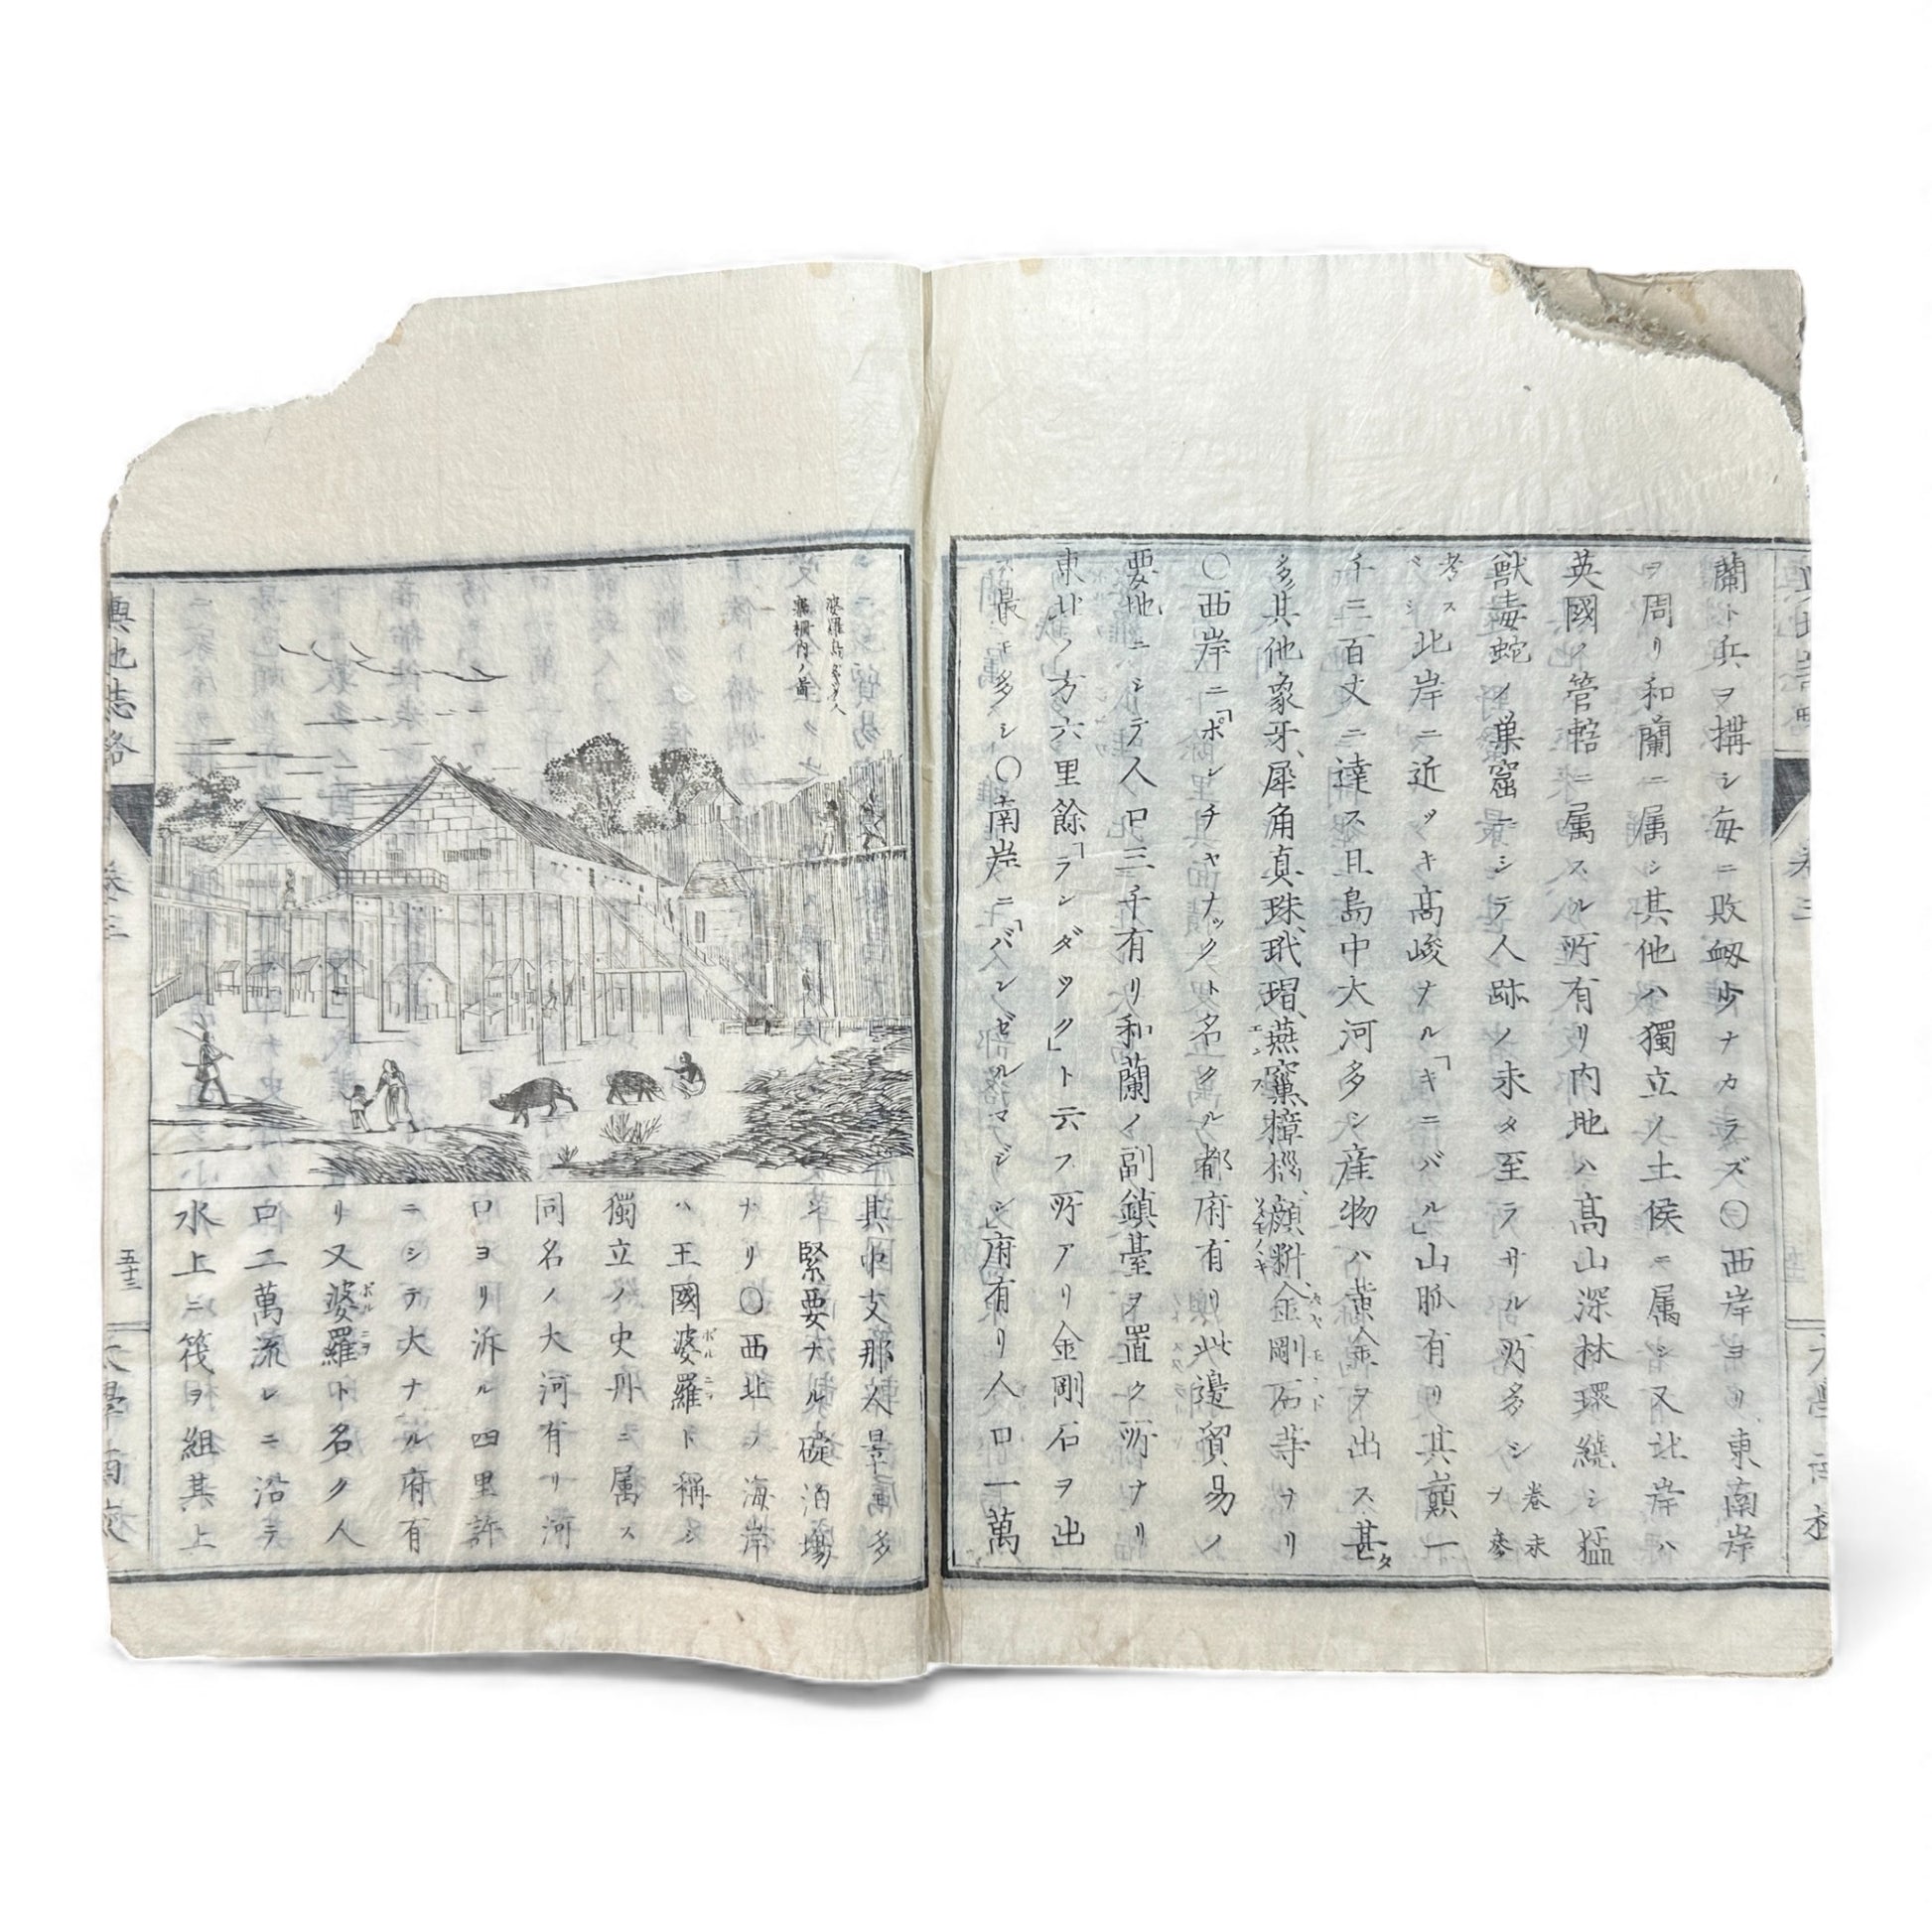 蘭ト兵ヲ搆シ毎ニ敗衂少ナカラズ〇西岸ヨリ東南岸
ヲ周リ和蘭ニ属シ其他ハ獨立ノ土侯ニ属シ又北岸ハ
英國ノ管轄ニ属スル所有リ内地ハ髙山深林環繞シ猛
獣毒蛇ノ巣窟ニシテ人跡ノ未タ至ラサル所多シ
卷末
ヲ参
考ス
ベシ
北岸ニ近ツキ髙峻ナル「キニバル」山脈有リ其巓一
千三百丈ニ達ス且島中大河多シ産物ハ黄金ヲ出ス甚タ
多ク其他象牙、犀角真珠、玳瑁、燕窠、金剛石等ナリ
〇西岸ニ「ポンチヤナックト名クル都府有リ此邊貿易ノ
要地ニシテ人口三千有リ和蘭ノ副鎮臺ヲ置ク所ナリ
東北ノ方六里餘「ランダック」ト云フ所アリ金剛石ヲ出
ス最モ多シ〇南岸ニ「バンゼルマジン」府有リ人口一萬
婆羅島
柵内ノ圖
其中支那人最多
シ緊要ナル碇泊塲
ナリ〇西北ノ海岸
ハ王國婆羅ト稱シ
獨立ノ史丹ニ属ス
同名ノ大河有リ河
口ヨリ泝ル四里許
ニシテ大ナル府有
リ又婆羅ト名ク人
口二萬流レニ沿テ
水上ニ筏ヲ組其上
輿地志畧
卷三
五十三
大學南校